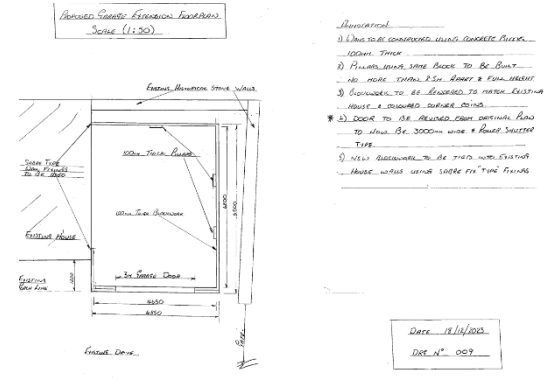 PROPOSED GARAGE EXTENSION FLOORPLAN
SCALE (1:50)
EXISTING STONE WALLS
100mm THICK PILLARS
SABRE TYPE
WALL FIXINGS
TO BE USED
100mm THICK BLOCKWORK
EXISTING HOUSE
3M GARAGE DOOR
EXISTING
4650
4850
EXISTING DRIVE
ANNOTATION
1) WALLS TO BE CONSTRUCTED USING CONCRETE BLOCKS,
100mm THICK
2) PILLARS USING SAME BLOCK TO BE BUILT
NO MORE THAN 2.5M APART & FULL HEIGHT
3) BLOCKWORK TO BE RENDERED TO MATCH EXISTING
HOUSE & COLOURED CORNER COINS.
* 4) DOOR TO BE REVISED FROM ORIGINAL PLAN
TO NOW BE 3000mm WIDE & POWER SHUTTER
TYPE.
5) NEW BLOCKWORK TO BE TIED INTO EXISTING
HOUSE WALLS USING SABRE FIX "TYPE" FIXINGS
DATE 18/12/2023
DRG N° 009